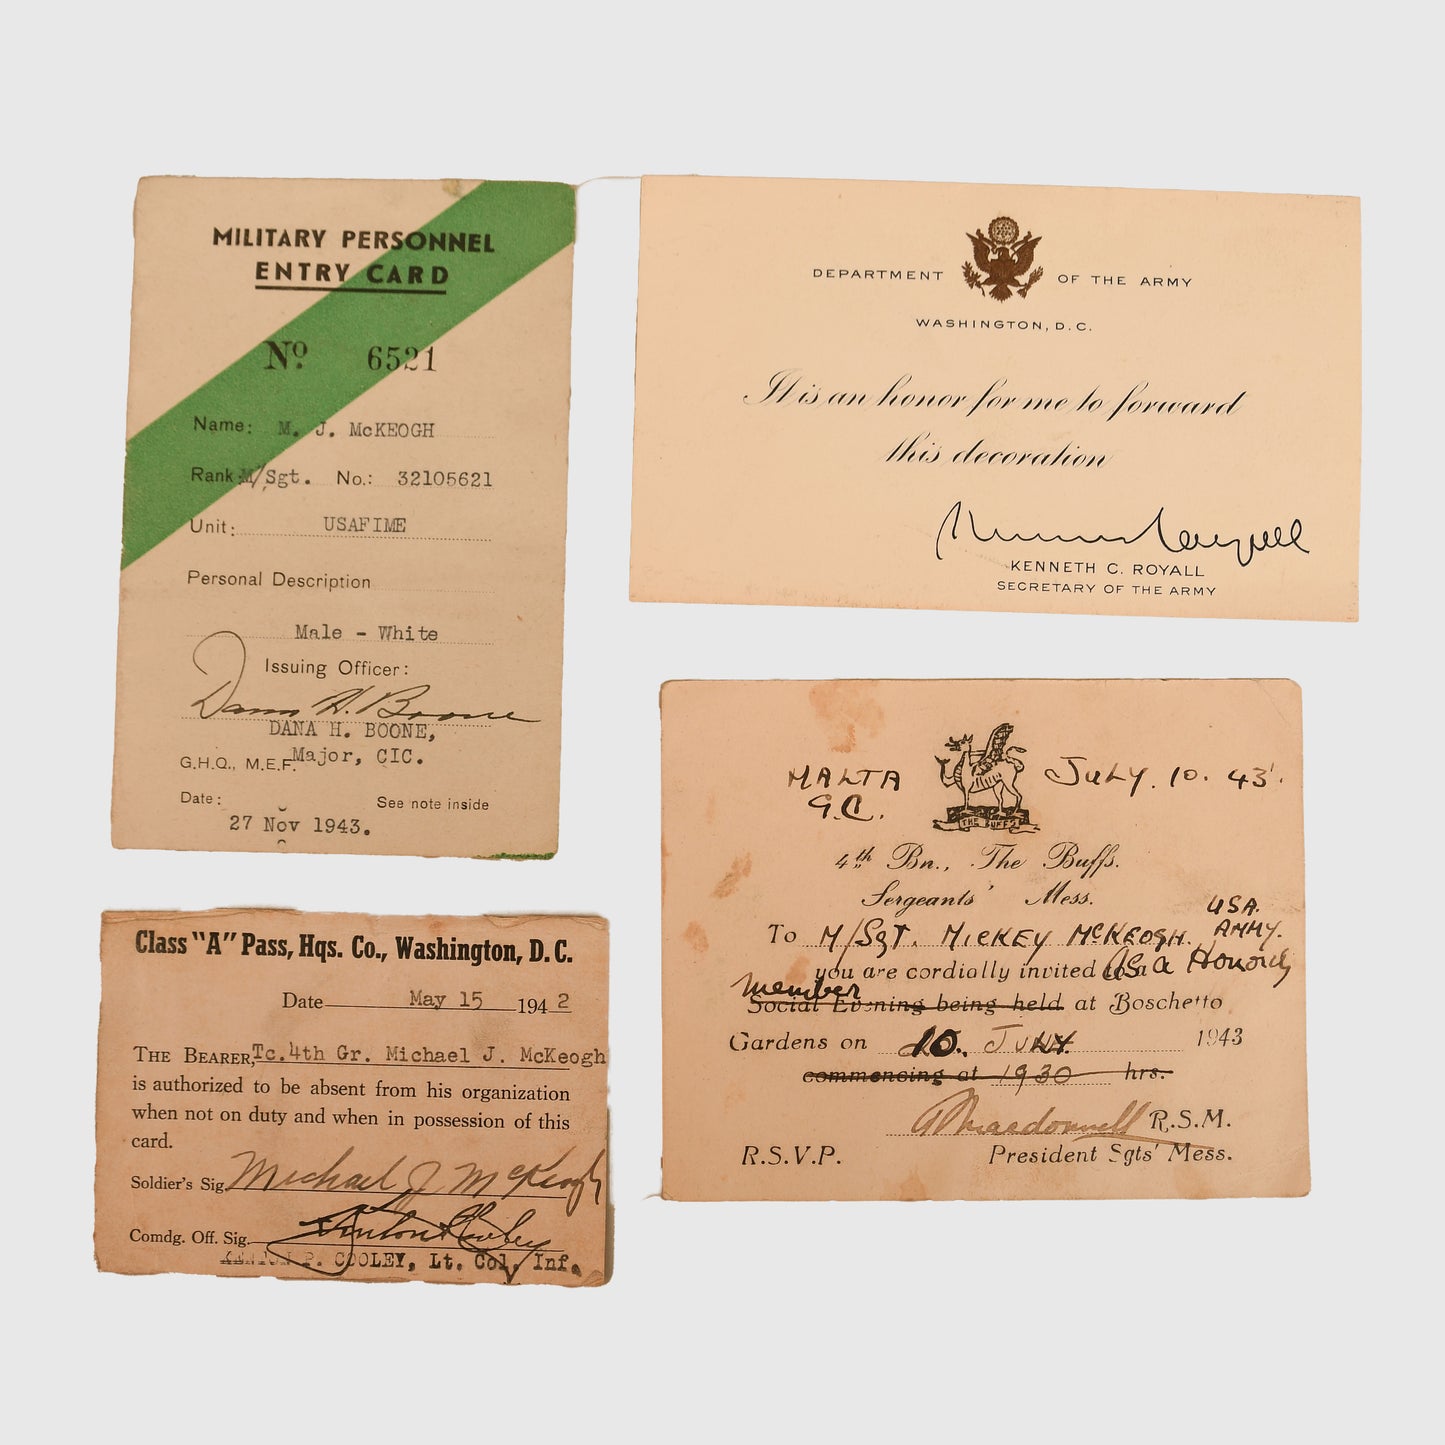 MILITARY PERSONNEL
ENTRY CARD
Nº 6521
Name: M. J. McKEOGH
Rank: M/Sgt. No.: 32105621
Unit: USAFIME
Personal Description
Male - White
Issuing Officer:
Dana H. Boone
DANA H. BOONE,
Major, CIC.
G.H.Q., M.E.F.
Date: See note inside
27 Nov 1943.
DEPARTMENT OF THE ARMY
WASHINGTON, D.C.
It is an honor for me to forward
this decoration
Kenneth C. Royall
KENNETH C. ROYALL
SECRETARY OF THE ARMY
Class "A" Pass, Hqs. Co., Washington, D. C.
Date May 15 1942
THE BEARER, Tc.4th Gr. Michael J. McKeogh
is authorized to be absent from his organization
when not on duty and when in possession of this
card.
Soldier's Sig. Michael J McKeogh
Comdg. Off. Sig.
P. COOLEY, Lt. Col, Inf.
MALTA JULY. 10. 43'.
G.C.
THE BUFFS
4th Bn., The Buffs.
Sergeants' Mess.
USA.
To M/SGT. MICKEY McKEOGH. ARMY.
you are cordially invited to a As a Honorary
member
Social Evening being held at Boschetto
Gardens on 10. JULY 1943
commencing at 1930 hrs.
Macdonnell R.S.M.
R.S.V.P. President Sgts' Mess.